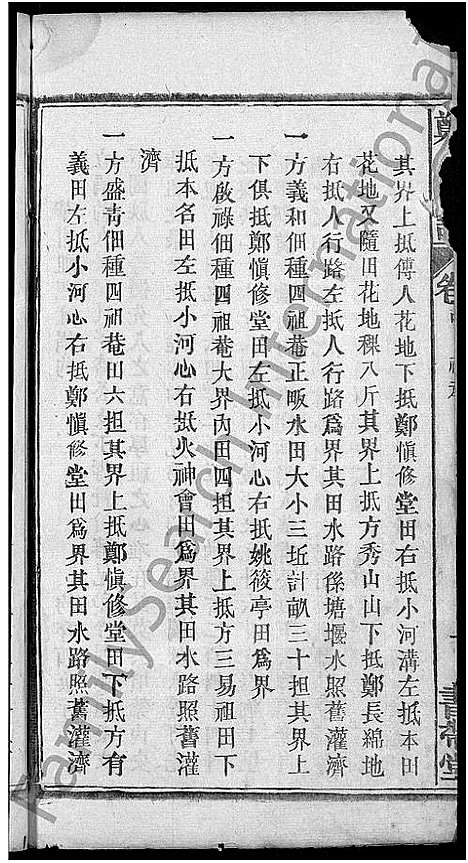 其界上抵傅人花地下抵鄭愼修堂田右抵小河溝左抵本田
花地又隨田花地稞八斤其界上抵方秀山山下抵鄭長綿地
右抵人行路左抵人行路爲界其田水路係塘堰水照舊灌濟
一方義和佃種四祖菴正畈水田大小三坵計畝三十担其界上
下俱抵鄭愼修堂田左抵小河心右抵姚筱亭田爲界
一方啟祿佃種四祖菴大界內田四担其界上抵方三易祖田下
抵本名田左抵小河心右抵火神會田爲界其田水路照舊灌
濟
一方盛青佃種四祖菴田六担其界上抵鄭愼修堂田下抵方有
義田左抵小河心右抵鄭愼修堂田爲界其田水路照舊灌濟
FamilySearch International